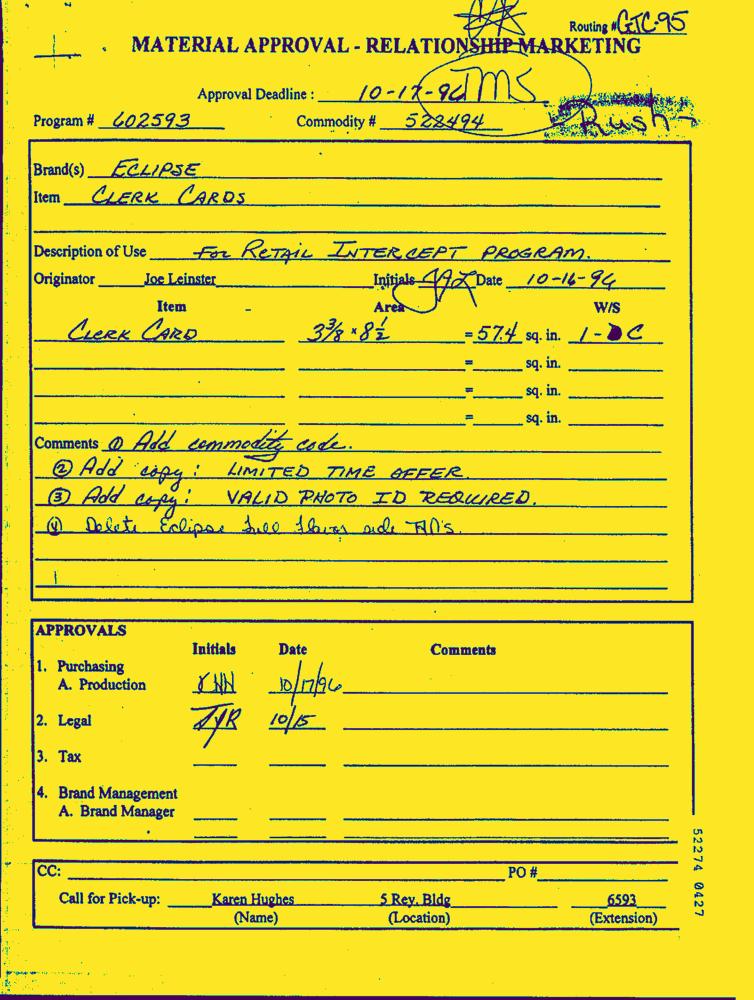 Routing # GTC-95
MATERIAL APPROVAL - RELATIONSHIP MARKETING
Approval Deadline : 10-17-96 TMS
Program # 602593 Commodity # 522494 Rush
Brand(s) ECLIPSE
Item CLERK CARDS
Description of Use FOR RETAIL INTERCEPT PROGRAM.
Originator Joe Leinster Initials Date 10-16-96
Item Area W/S
CLERK CARD 3 3/8 x 8 1/2 = 57.4 sq. in. 1- C
= sq. in.
= sq. in.
= sq. in.
Comments ① Add commodity code.
② Add copy: LIMITED TIME OFFER.
③ Add copy: VALID PHOTO ID REQUIRED.
④ Delete Eclipse full flavor side
APPROVALS
Initials Date Comments
1. Purchasing
A. Production 10/17/96
2. Legal 10/15
3. Tax
4. Brand Management
A. Brand Manager
CC: PO #
Call for Pick-up: Karen Hughes 5 Rey. Bldg 6593
(Name) (Location) (Extension)
52274 0427